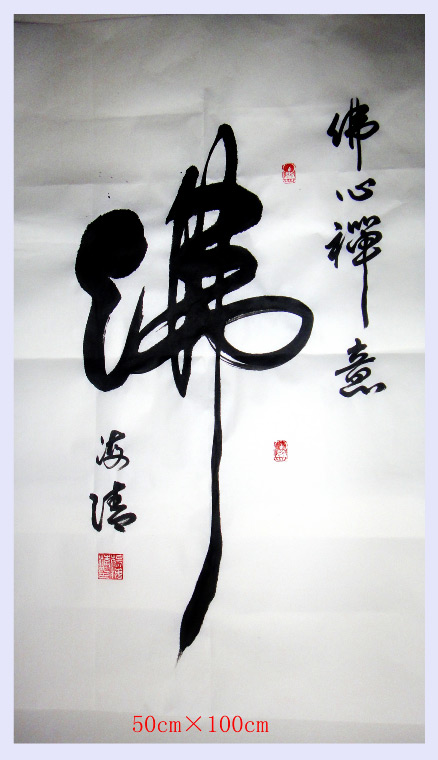 佛心禪意
佛
海清
50cm×100cm